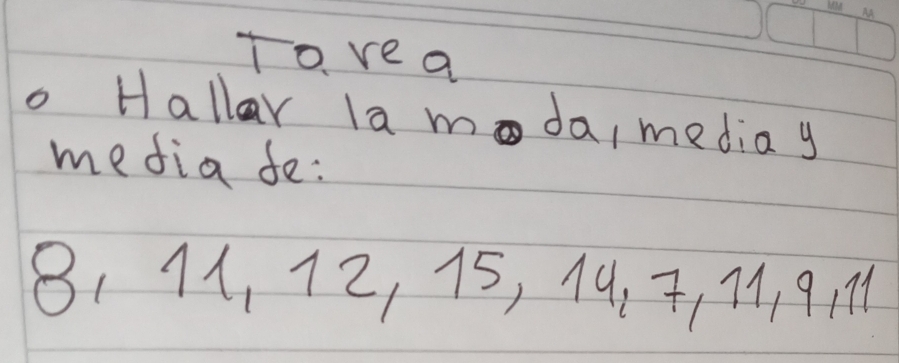 MM AA
Tarea
o Hallar la moda, media y
media de:
8, 11, 12, 15, 14, 7, 11, 9, 11